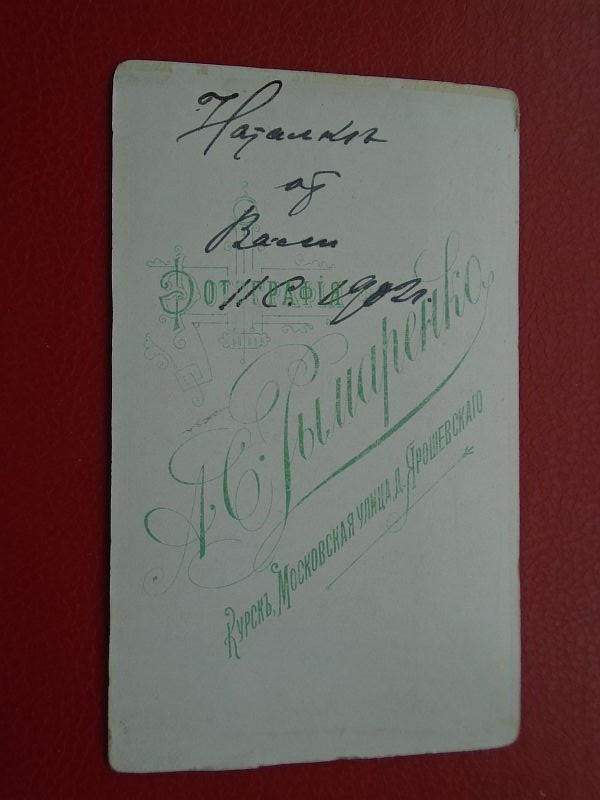 Наталкѣ
от
Вали
11 С. 1902 г.
Фотографія
А. С. Рымаренко
Курскъ, Московская улица, д. Ярошевскаго